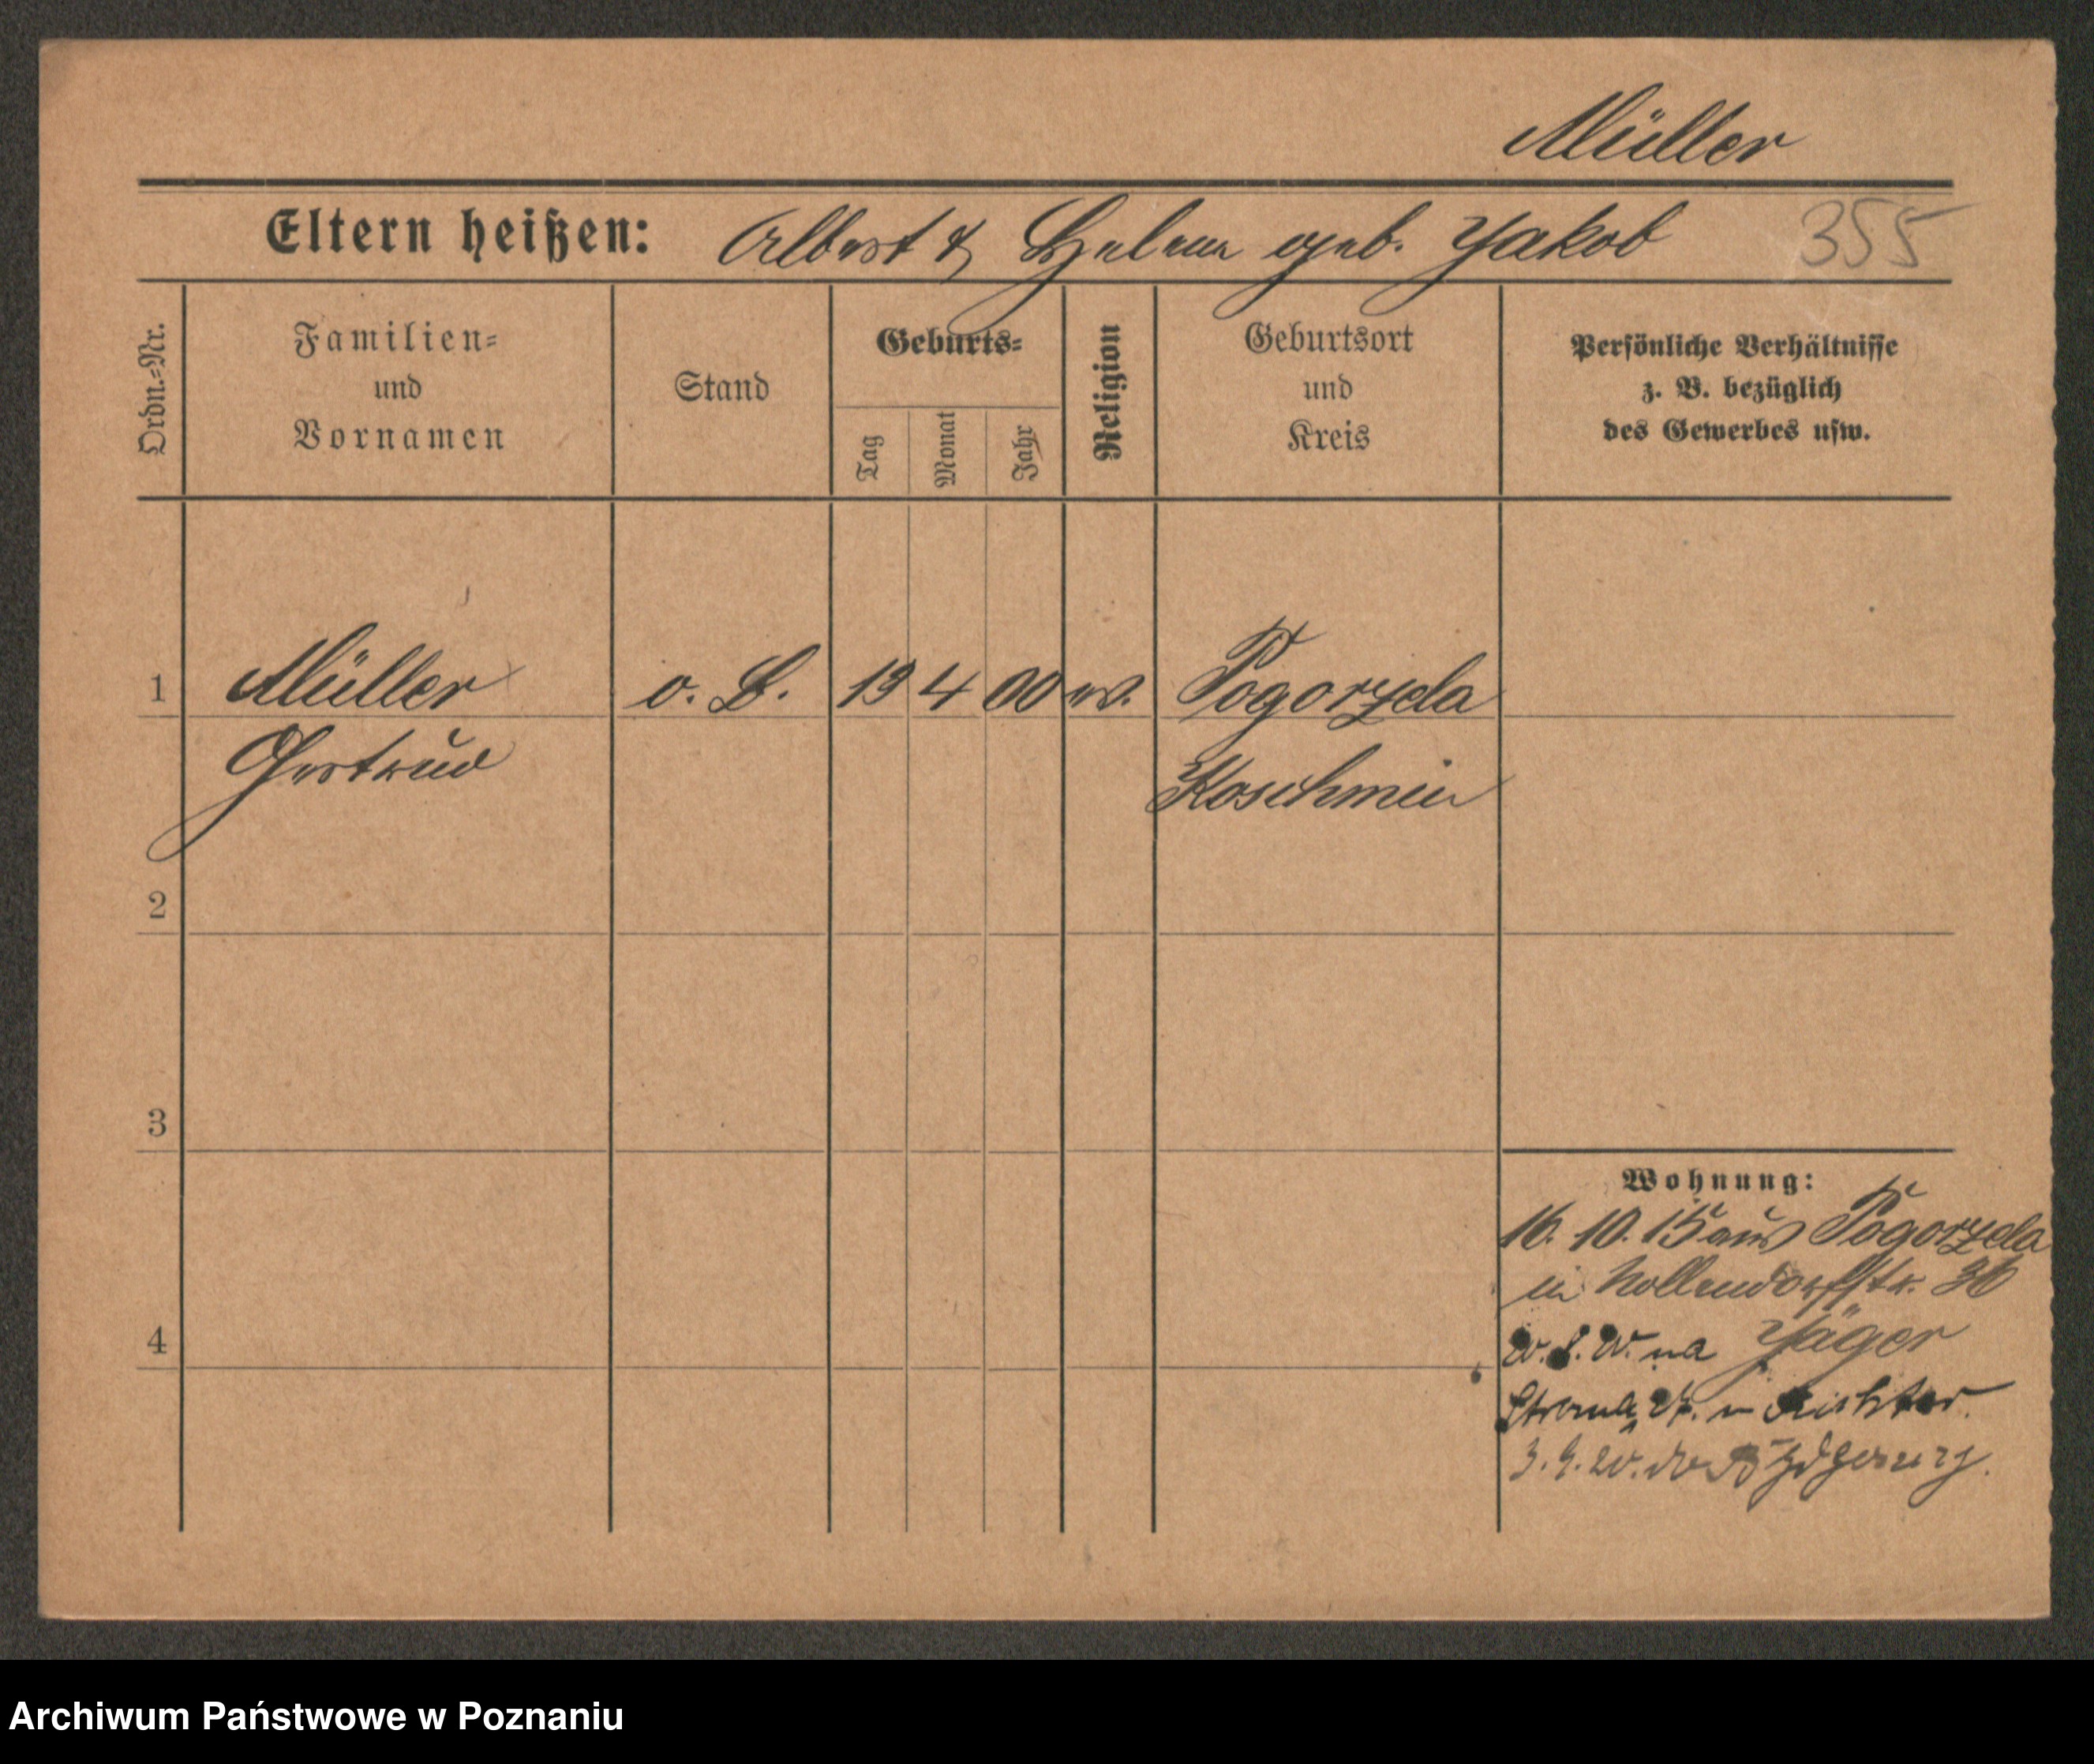 Müller
Eltern heißen: Albert & Helene geb. Jakob 355
Ordn.-Nr.
Familien-
und
Vornamen
Stand
Geburts-
Tag
Monat
Jahr
Religion
Geburtsort
und
Kreis
Persönliche Verhältnisse
z. B. bezüglich
des Gewerbes usw.
1 Müller o. B. 19 4 00 ev. Pogorzela
Gertrud Koschmin
2
3
4
Wohnung:
16. 10. 15 aus Pogorzela
in Nollendorfstr. 36
na Jäger
Richter
3. 9. 20.
Archiwum Państwowe w Poznaniu